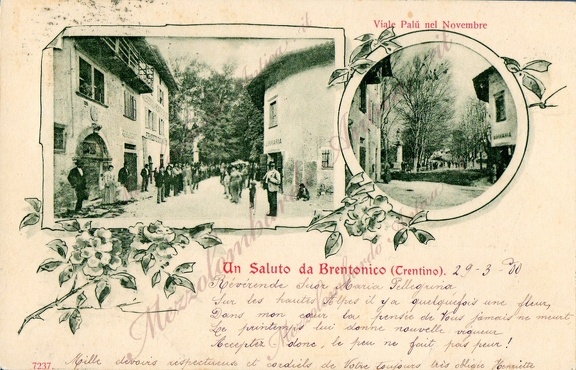 Viale Palù nel Novembre
Un Saluto da Brentonico (Trentino). 29-3-00
Révérende Suor Maria Pellegrina
Sur les hautes Alpes il y a quelquefois une fleur,
Dans mon cœur la pensée de Vous jamais ne meurt
Le printemps lui donne nouvelle vigueur
Acceptez donc, le peu ne fait pas peur!
7237.
Mille devoirs respectueux et cordiels de Votre toujours très obligée Henriette